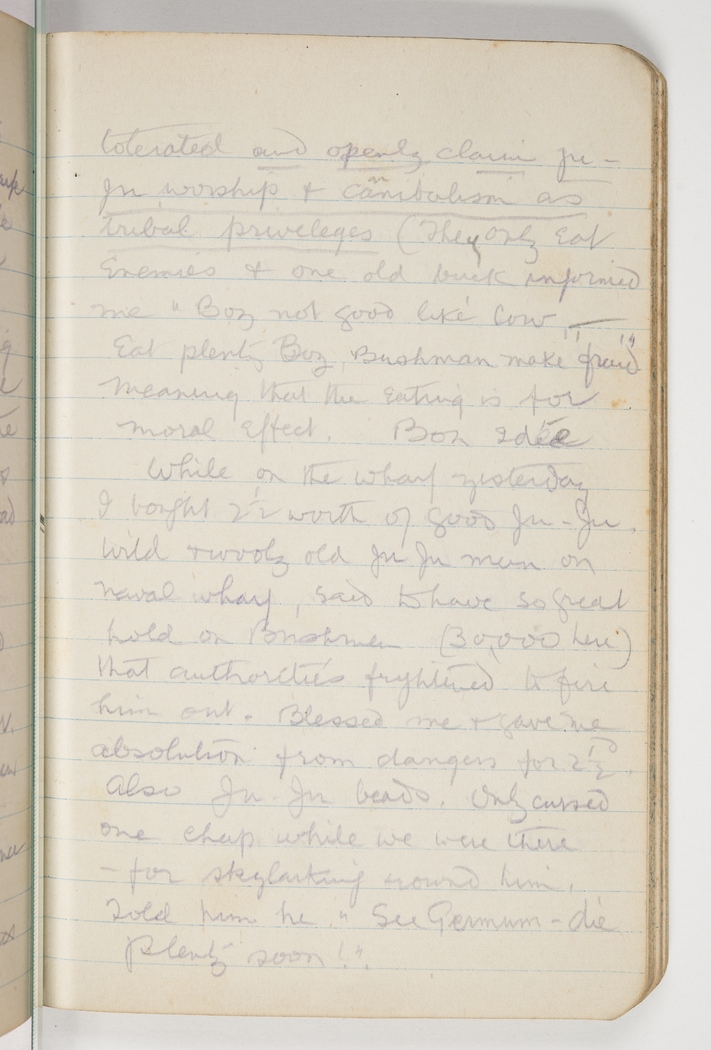 tolerated and openly claim Ju-
Ju worship & cannibalism as
tribal priveleges (They only Eat
Enemies & one old buck informed
me "Boy not good like Cow —
Eat plenty Boy, Bushman make 'fraid"
meaning that the Eating is for
moral Effect. Bon Idée
While on the wharf yesterday
I bought 2½ worth of good Ju-Ju.
Wild & wooly old Ju Ju man on
naval wharf, said to have so great
hold on Bushmen (30,000 here)
that authorities frightened to fire
him out. Blessed me & gave me
absolution from dangers for 2½d.
Also Ju-Ju beads. Only cursed
one chap while we were there
- for skylarking around him.
Told him he "See Germum - die
plenty soon!".